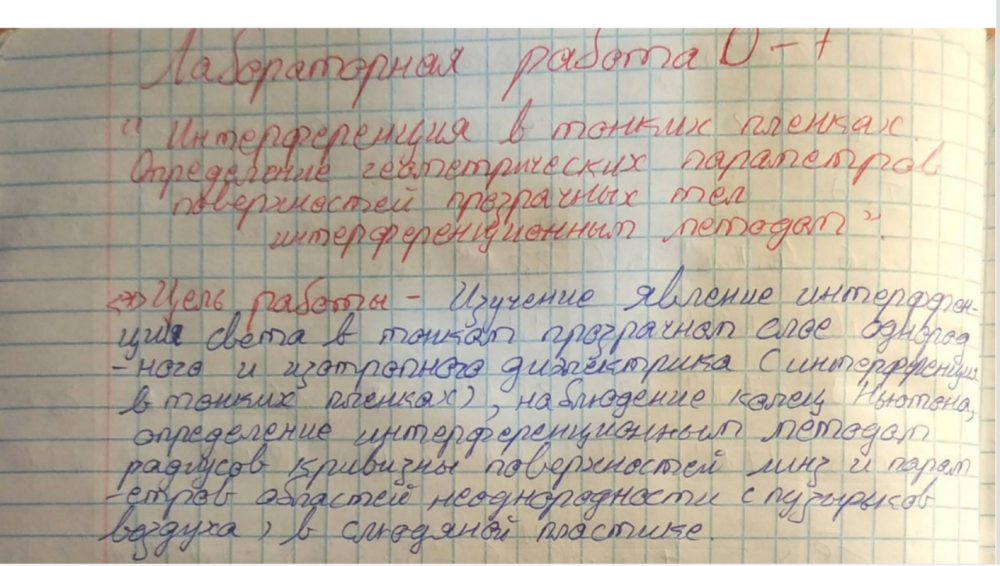 Лабораторная работа О-7
"Интерференция в тонких пленках.
Определение геометрических параметров
поверхностей прозрачных тел
интерференционным методом".
Цель работы - Изучение явление интерффен-
ции света в тонком прозрачном слое однород
-ного и изотропного диэлектрика (интерфференция
в тонких пленках), наблюдение колец Ньютона,
определение интерференционным методом
радиусов кривизны поверхностей линз и парам
-етров областей неоднородности (пузырьков
воздуха) в слюдяной пластике.